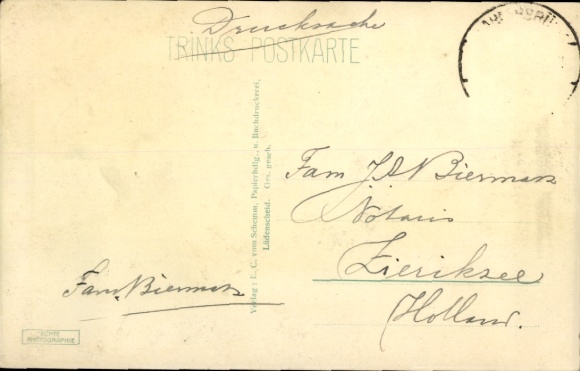 Drucksache
TRINKS POSTKARTE
Fam J A Bierman
Notaris
Zieriksee
Holland.
Fam. Bierman
Verlag: L. C. vom Schemm, Papierhdlg. u. Buchdruckerei,
Lüdenscheid. Ges. gesch.
ECHTE
PHOTOGRAPHIE